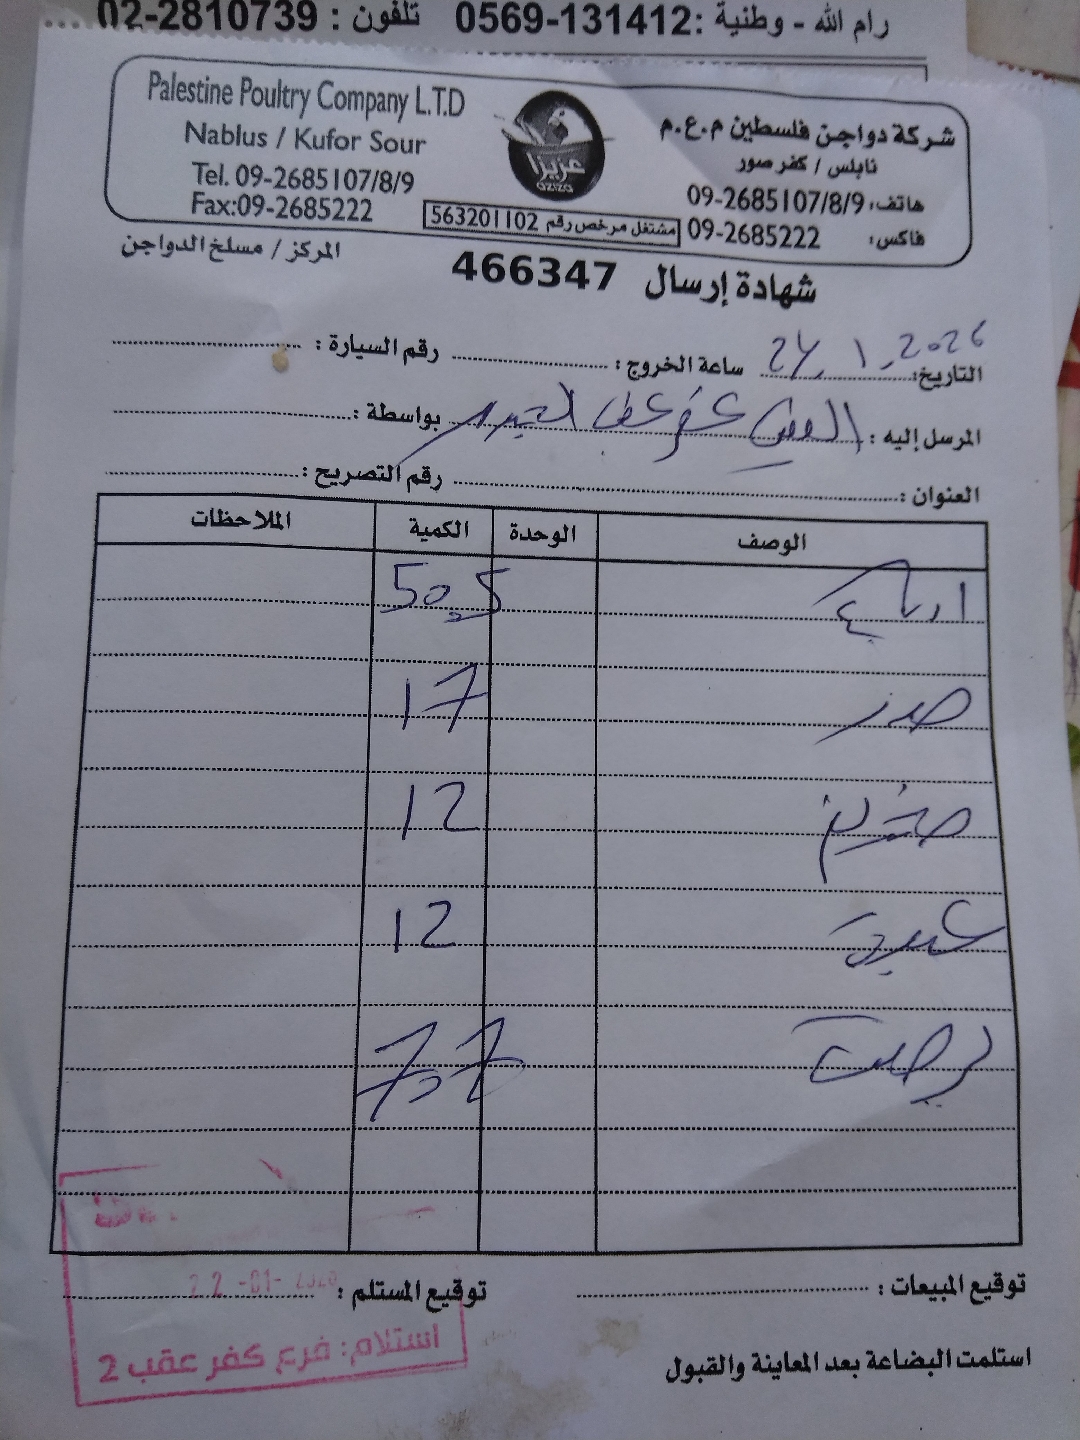 رام الله - وطنية : 0569-131412 تلفون : 02-2810739
Palestine Poultry Company L.T.D
Nablus / Kufor Sour
Tel. 09-2685107/8/9
Fax:09-2685222
عزيزا
aziza
مشتغل مرخص رقم 563201102
شركة دواجن فلسطين م.ع.م
نابلس / كفر صور
هاتف: 09-2685107/8/9
فاكس: 09-2685222
المركز / مسلخ الدواجن
شهادة إرسال 466347
التاريخ: 24.1.2026 ساعة الخروج : رقم السيارة :
المرسل إليه : كفر عقب الجديد بواسطة :
العنوان : رقم التصريح :
الوصف الوحدة الكمية الملاحظات
ارباع 50.5
صدر 17
12
12
7.7
توقيع المبيعات : توقيع المستلم :
22-01-2026
استلام: فرع كفر عقب 2
استلمت البضاعة بعد المعاينة والقبول